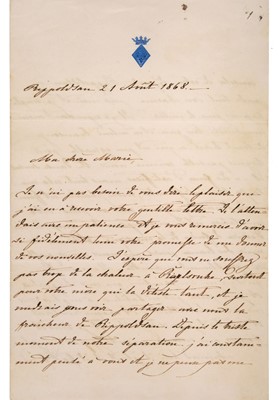 1
Rippoldsau 21 Août 1868.
Ma chère Marie,
Je n'ai pas besoin de vous dire le plaisir que
j'ai eu à recevoir votre gentille lettre. Je l'atten-
dais avec impatience. Et je vous remercie d'avoir
si fidèlement tenu votre promesse de me donner
de vos nouvelles. J'espère que vous ne souffrez
pas trop de la chaleur à Carlsruhe surtout
pour votre mère qui la déteste tant, et je
voudrais pouvoir partager avec vous la
fraîcheur de Rippoldsau. Depuis le triste
moment de notre séparation, j'ai constam-
ment pensé à vous et je ne puis pas